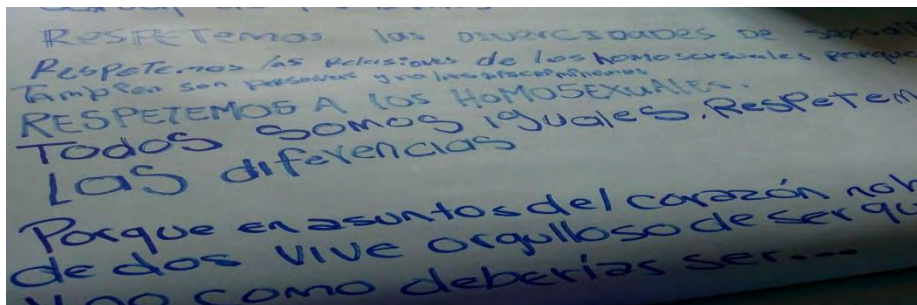 RESPETEMOS las DIVERCIDADES DE sexuali
Respetemos las Relasiones de los homosexsuales porque
Tampien son personas y no los discriminemos
RESPETEMOS A los HOMOSEXUALES.
Todos somos iguales, Respetem
Las diferencias
Porque en asuntos del corazón no h
de dos vive orgulloso de ser qu
como deberías ser...